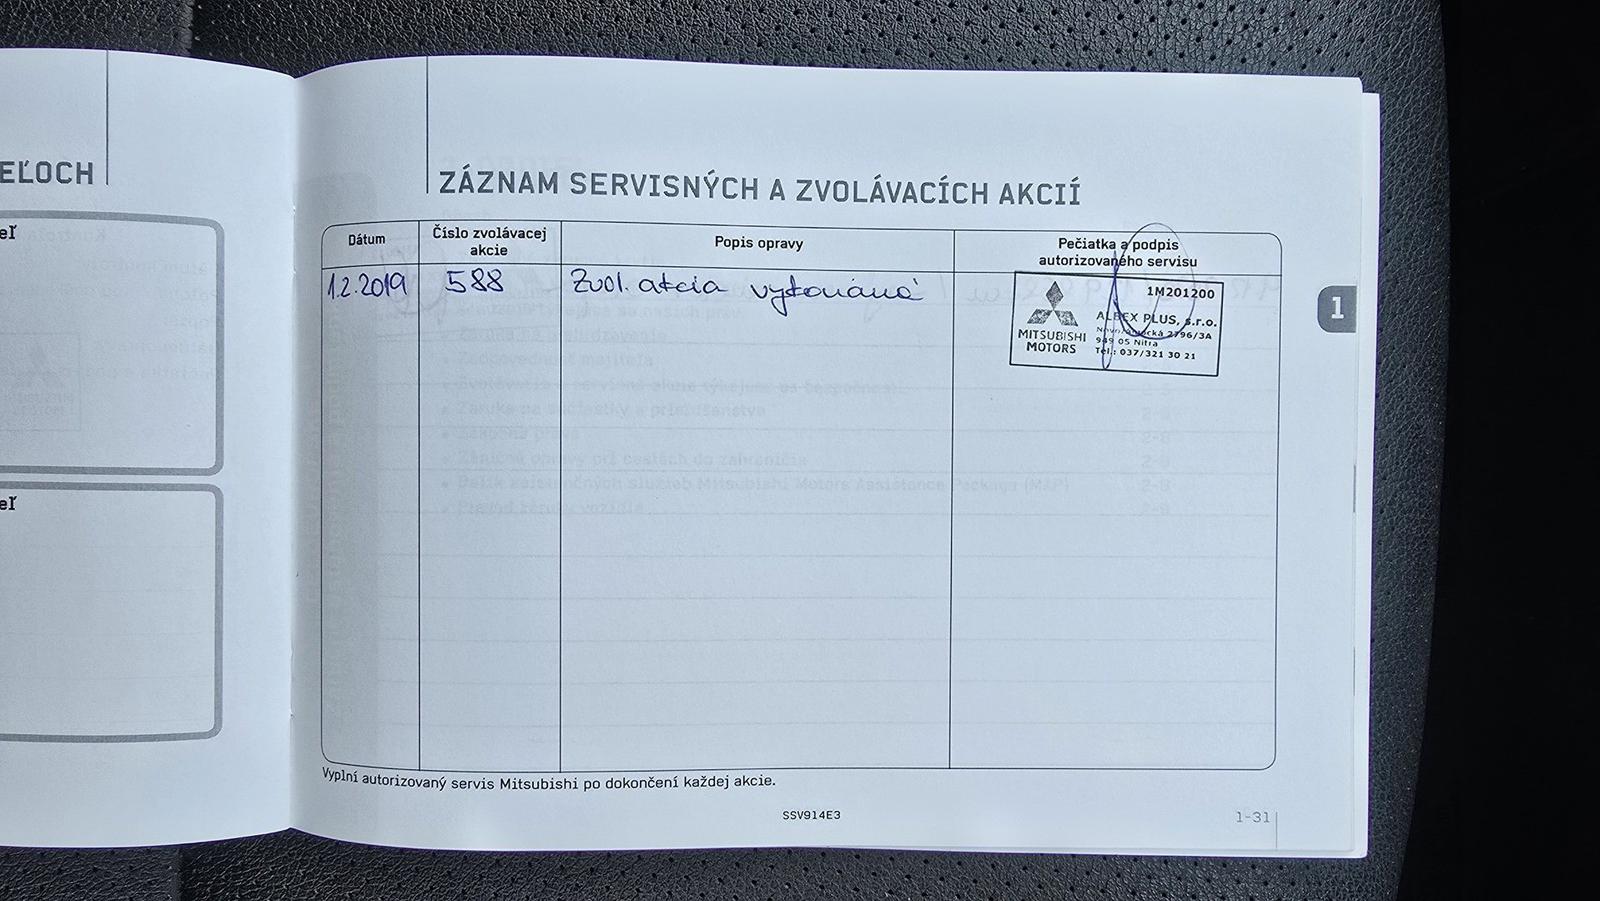 EĽOCH
eľ
eľ
ZÁZNAM SERVISNÝCH A ZVOLÁVACÍCH AKCIÍ
Dátum
Číslo zvolávacej
akcie
Popis opravy
Pečiatka a podpis
autorizovaného servisu
1.2.2019 588 Zvol. akcia vykonaná
1M201200
ALBEX PLUS, s.r.o.
2796/3A
949 05 Nitra
Tel.: 037/321 30 21
MITSUBISHI
MOTORS
1
Vyplní autorizovaný servis Mitsubishi po dokončení každej akcie.
SSV914E3
1-31